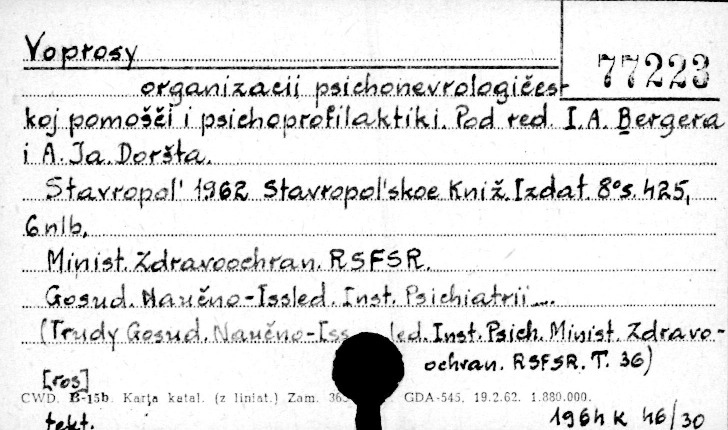 Voprosy
77223
organizacii psichonevrologičes-
koj pomošči i psichoprofilaktiki. Pod red. I.A. Bergera
i A. Ja. Doršta.
Stavropol' 1962 Stavropol'skoe Kniž. Izdat. 8° s. 425,
6 nlb.
Minist. Zdravoochran. RSFSR.
Gosud. Naučno-Issled. Inst. Psichiatrii...
(Trudy Gosud. Naučno-Issled. Inst. Psich. Minist. Zdravo-
ochran. RSFSR. T. 36)
[ros]
CWD. B-15b. Karta katal. (z liniat.) Zam. GDA-545. 19.2.62. 1.880.000.
tekt. 1964 K 46/30